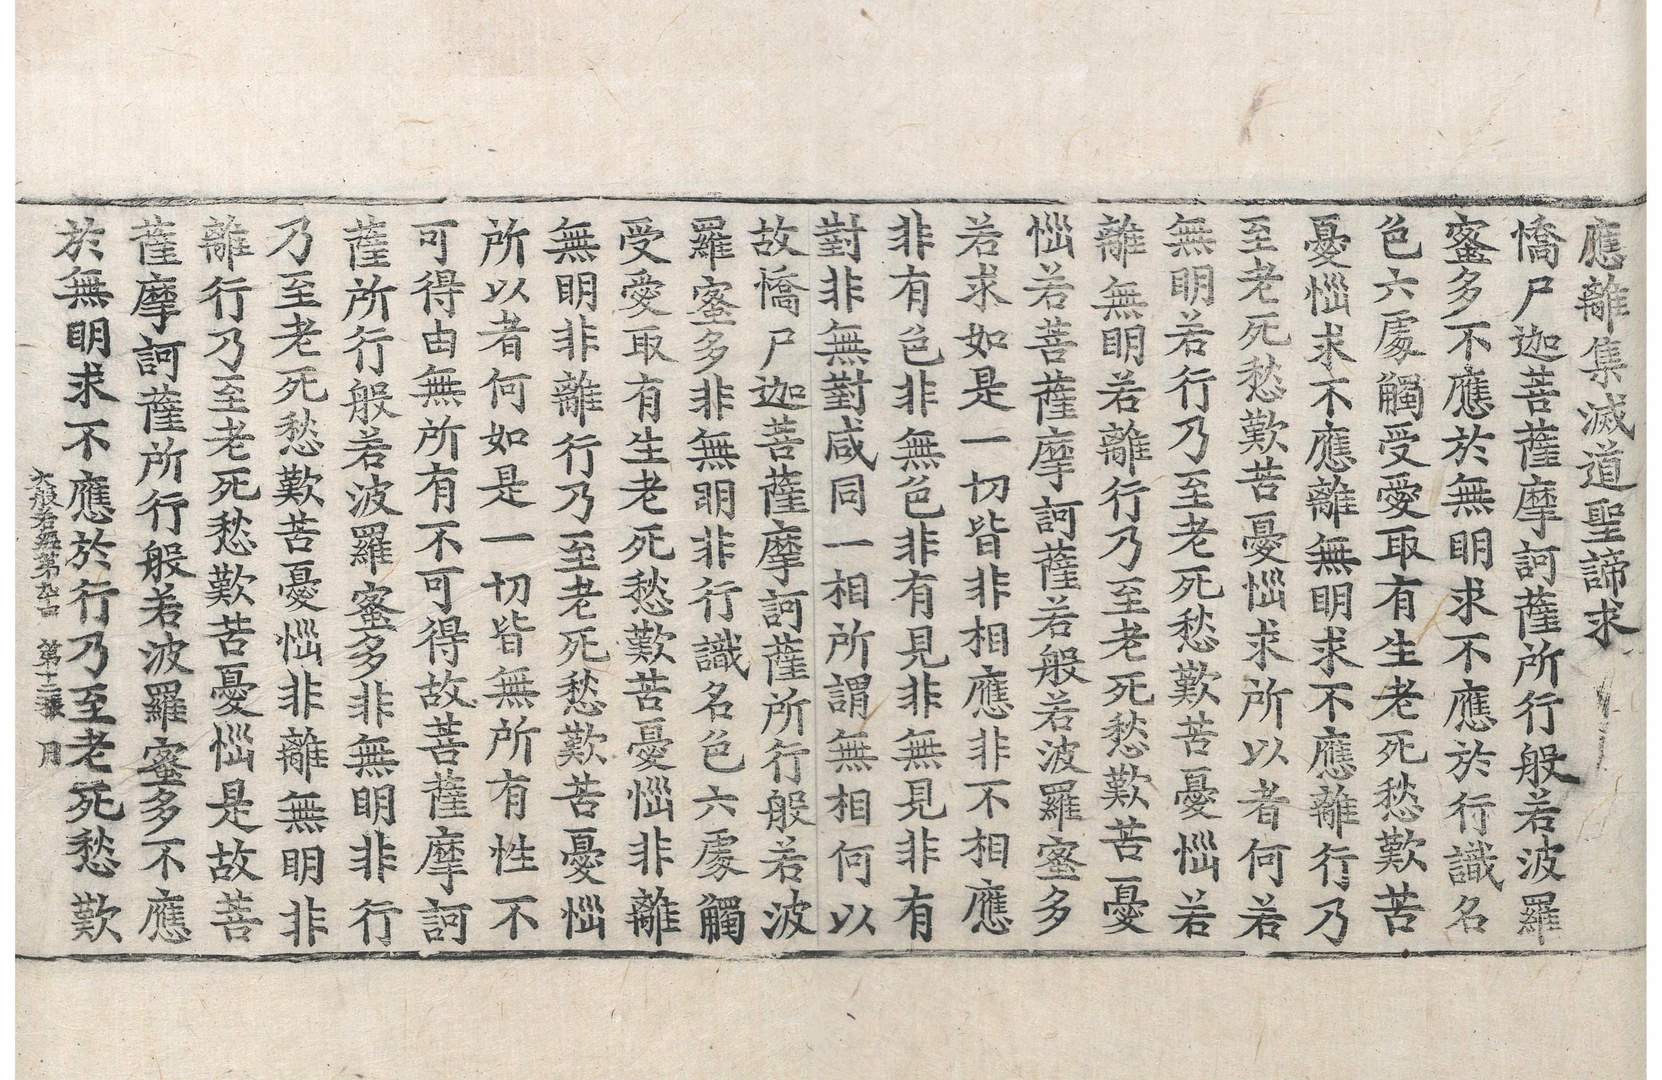 應離集滅道聖諦求
憍尸迦菩薩摩訶薩所行般若波羅
蜜多不應於無明求不應於行識名
色六處觸受愛取有生老死愁歎苦
憂惱求不應離無明求不應離行乃
至老死愁歎苦憂惱求所以者何若
無明若行乃至老死愁歎苦憂惱若
離無明若離行乃至老死愁歎苦憂
惱若菩薩摩訶薩若般若波羅蜜多
若求如是一切皆非相應非不相應
非有色非無色非有見非無見非有
對非無對咸同一相所謂無相何以
故憍尸迦菩薩摩訶薩所行般若波
羅蜜多非無明非行識名色六處觸
受愛取有生老死愁歎苦憂惱非離
無明非離行乃至老死愁歎苦憂惱
所以者何如是一切皆無所有性不
可得由無所有不可得故菩薩摩訶
薩所行般若波羅蜜多非無明非行
乃至老死愁歎苦憂惱非離無明非
離行乃至老死愁歎苦憂惱是故菩
薩摩訶薩所行般若波羅蜜多不應
於無明求不應於行乃至老死愁歎
大般若經第九十 第十二張 月